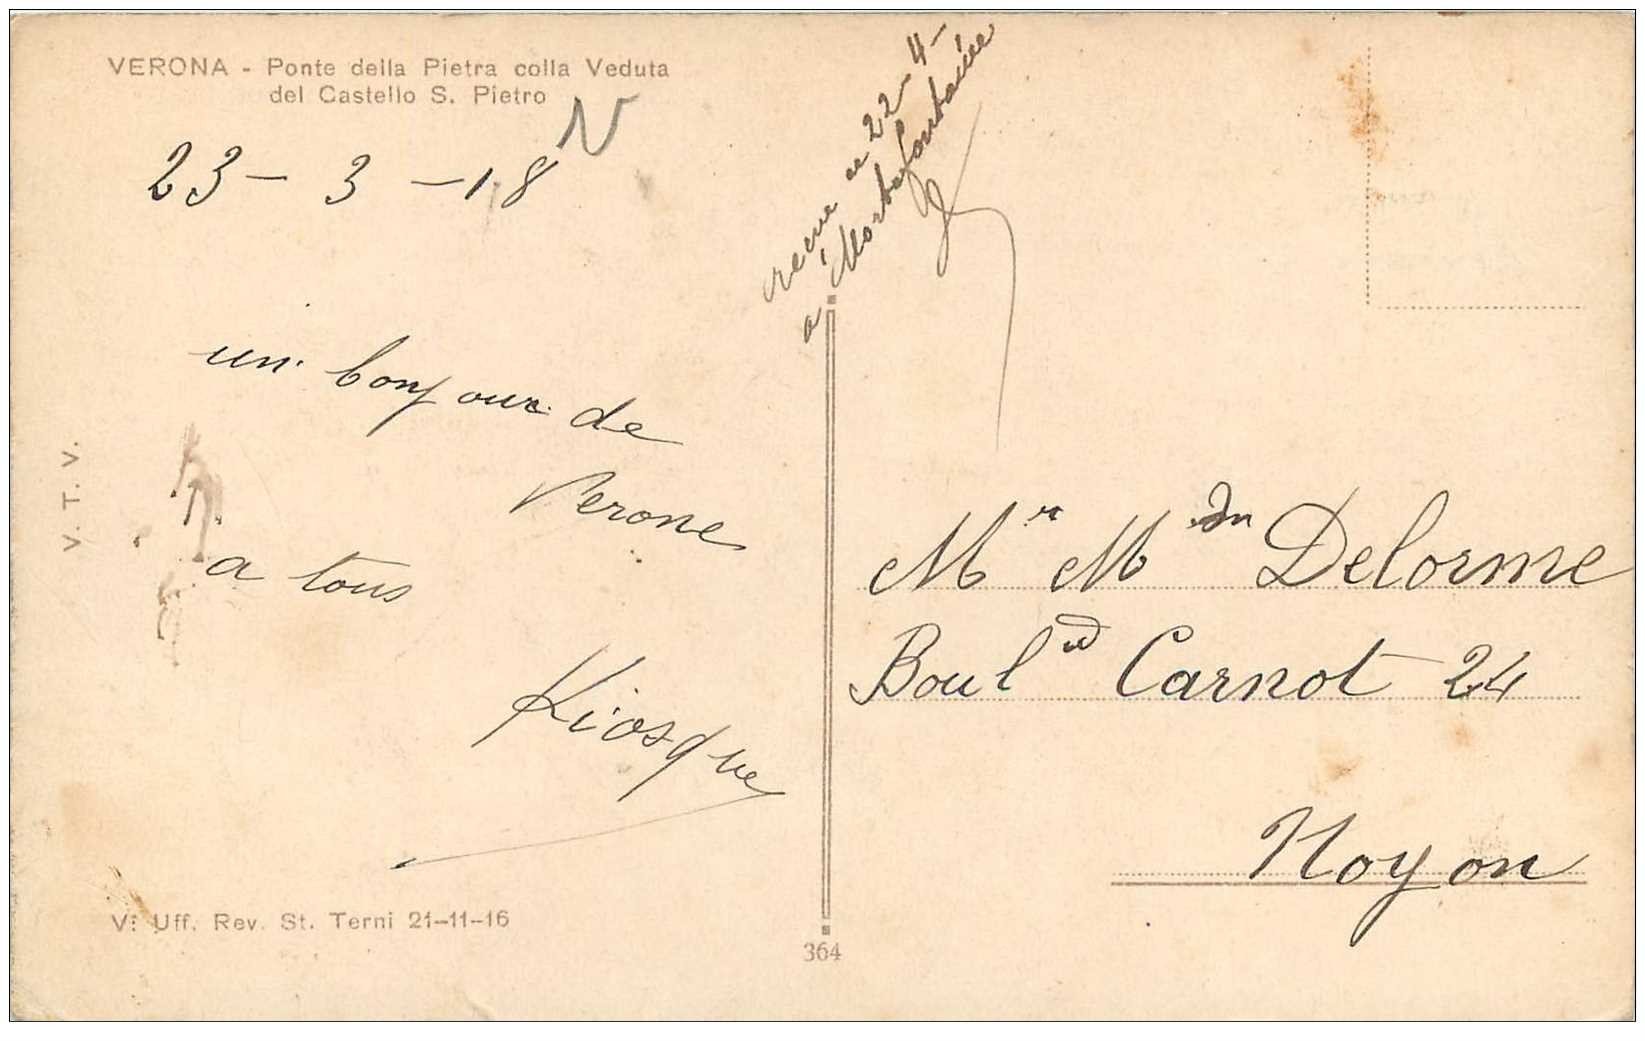 VERONA - Ponte della Pietra colla Veduta
del Castello S. Pietro
N
23 - 3 - 18
un bonjour de
Verone
a tous
Kiosque
V. T. V.
V: Uff. Rev. St. Terni 21-11-16
recue ce 22-4-
a Mortefontaine
364
Mr Mdn Delorme
Boul d Carnot 24
Noyon